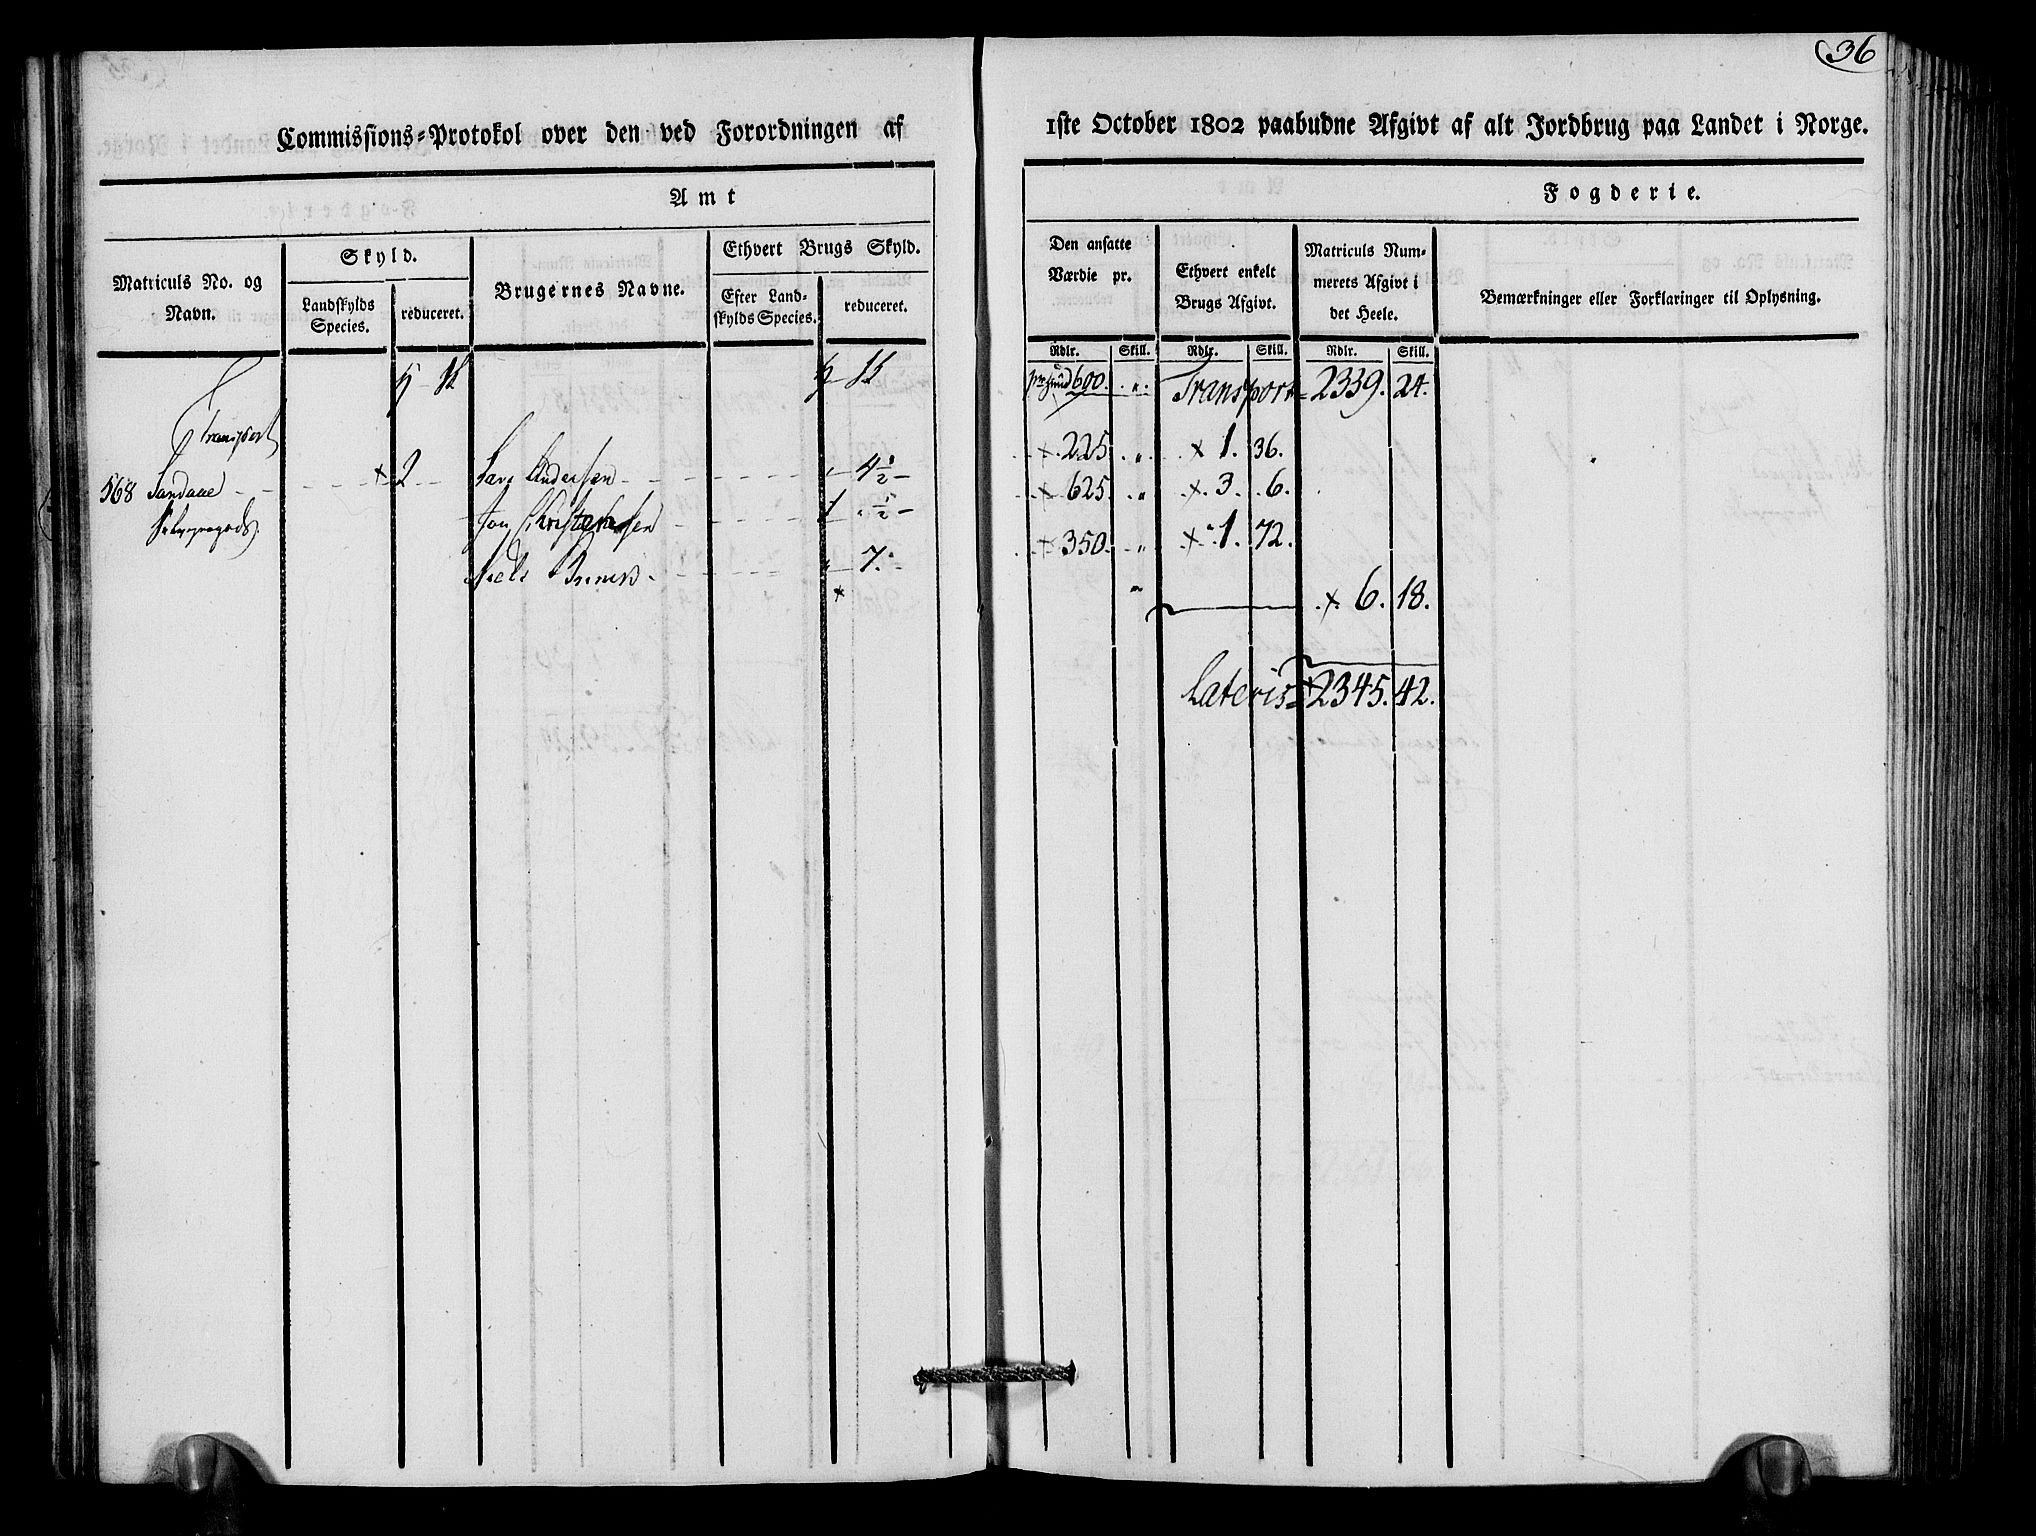 36
Commissions-Protokol over den ved Forordningen af 1ste October 1802 paabudne Afgivt af alt Jordbrug paa Landet i Norge.
Amt
Fogderie.
Matriculs No. og Navn.
Skyld.
Landskylds Species.
reduceret.
Brugernes Navne.
Ethvert Brugs Skyld.
Efter Landskylds Species.
reduceret.
Den ansatte Værdie pr.
Ethvert enkelt Brugs Afgivt.
Matriculs Nummerets Afgivt i det Heele.
Bemærkninger eller Forklaringer til Oplysning.
Rdlr. Skill. Rdlr. Skill. Rdlr. Skill.
600. " Transport = 2339. 24.
Transport
568 Sandaae 2 Lars Andersen 4½ 225 " 1. 36.
Jon Christophersen 1 ½ 625 " 3. 6.
Niels 7. 350. " 1. 72.
6. 18.
Lateris = 2345. 42.